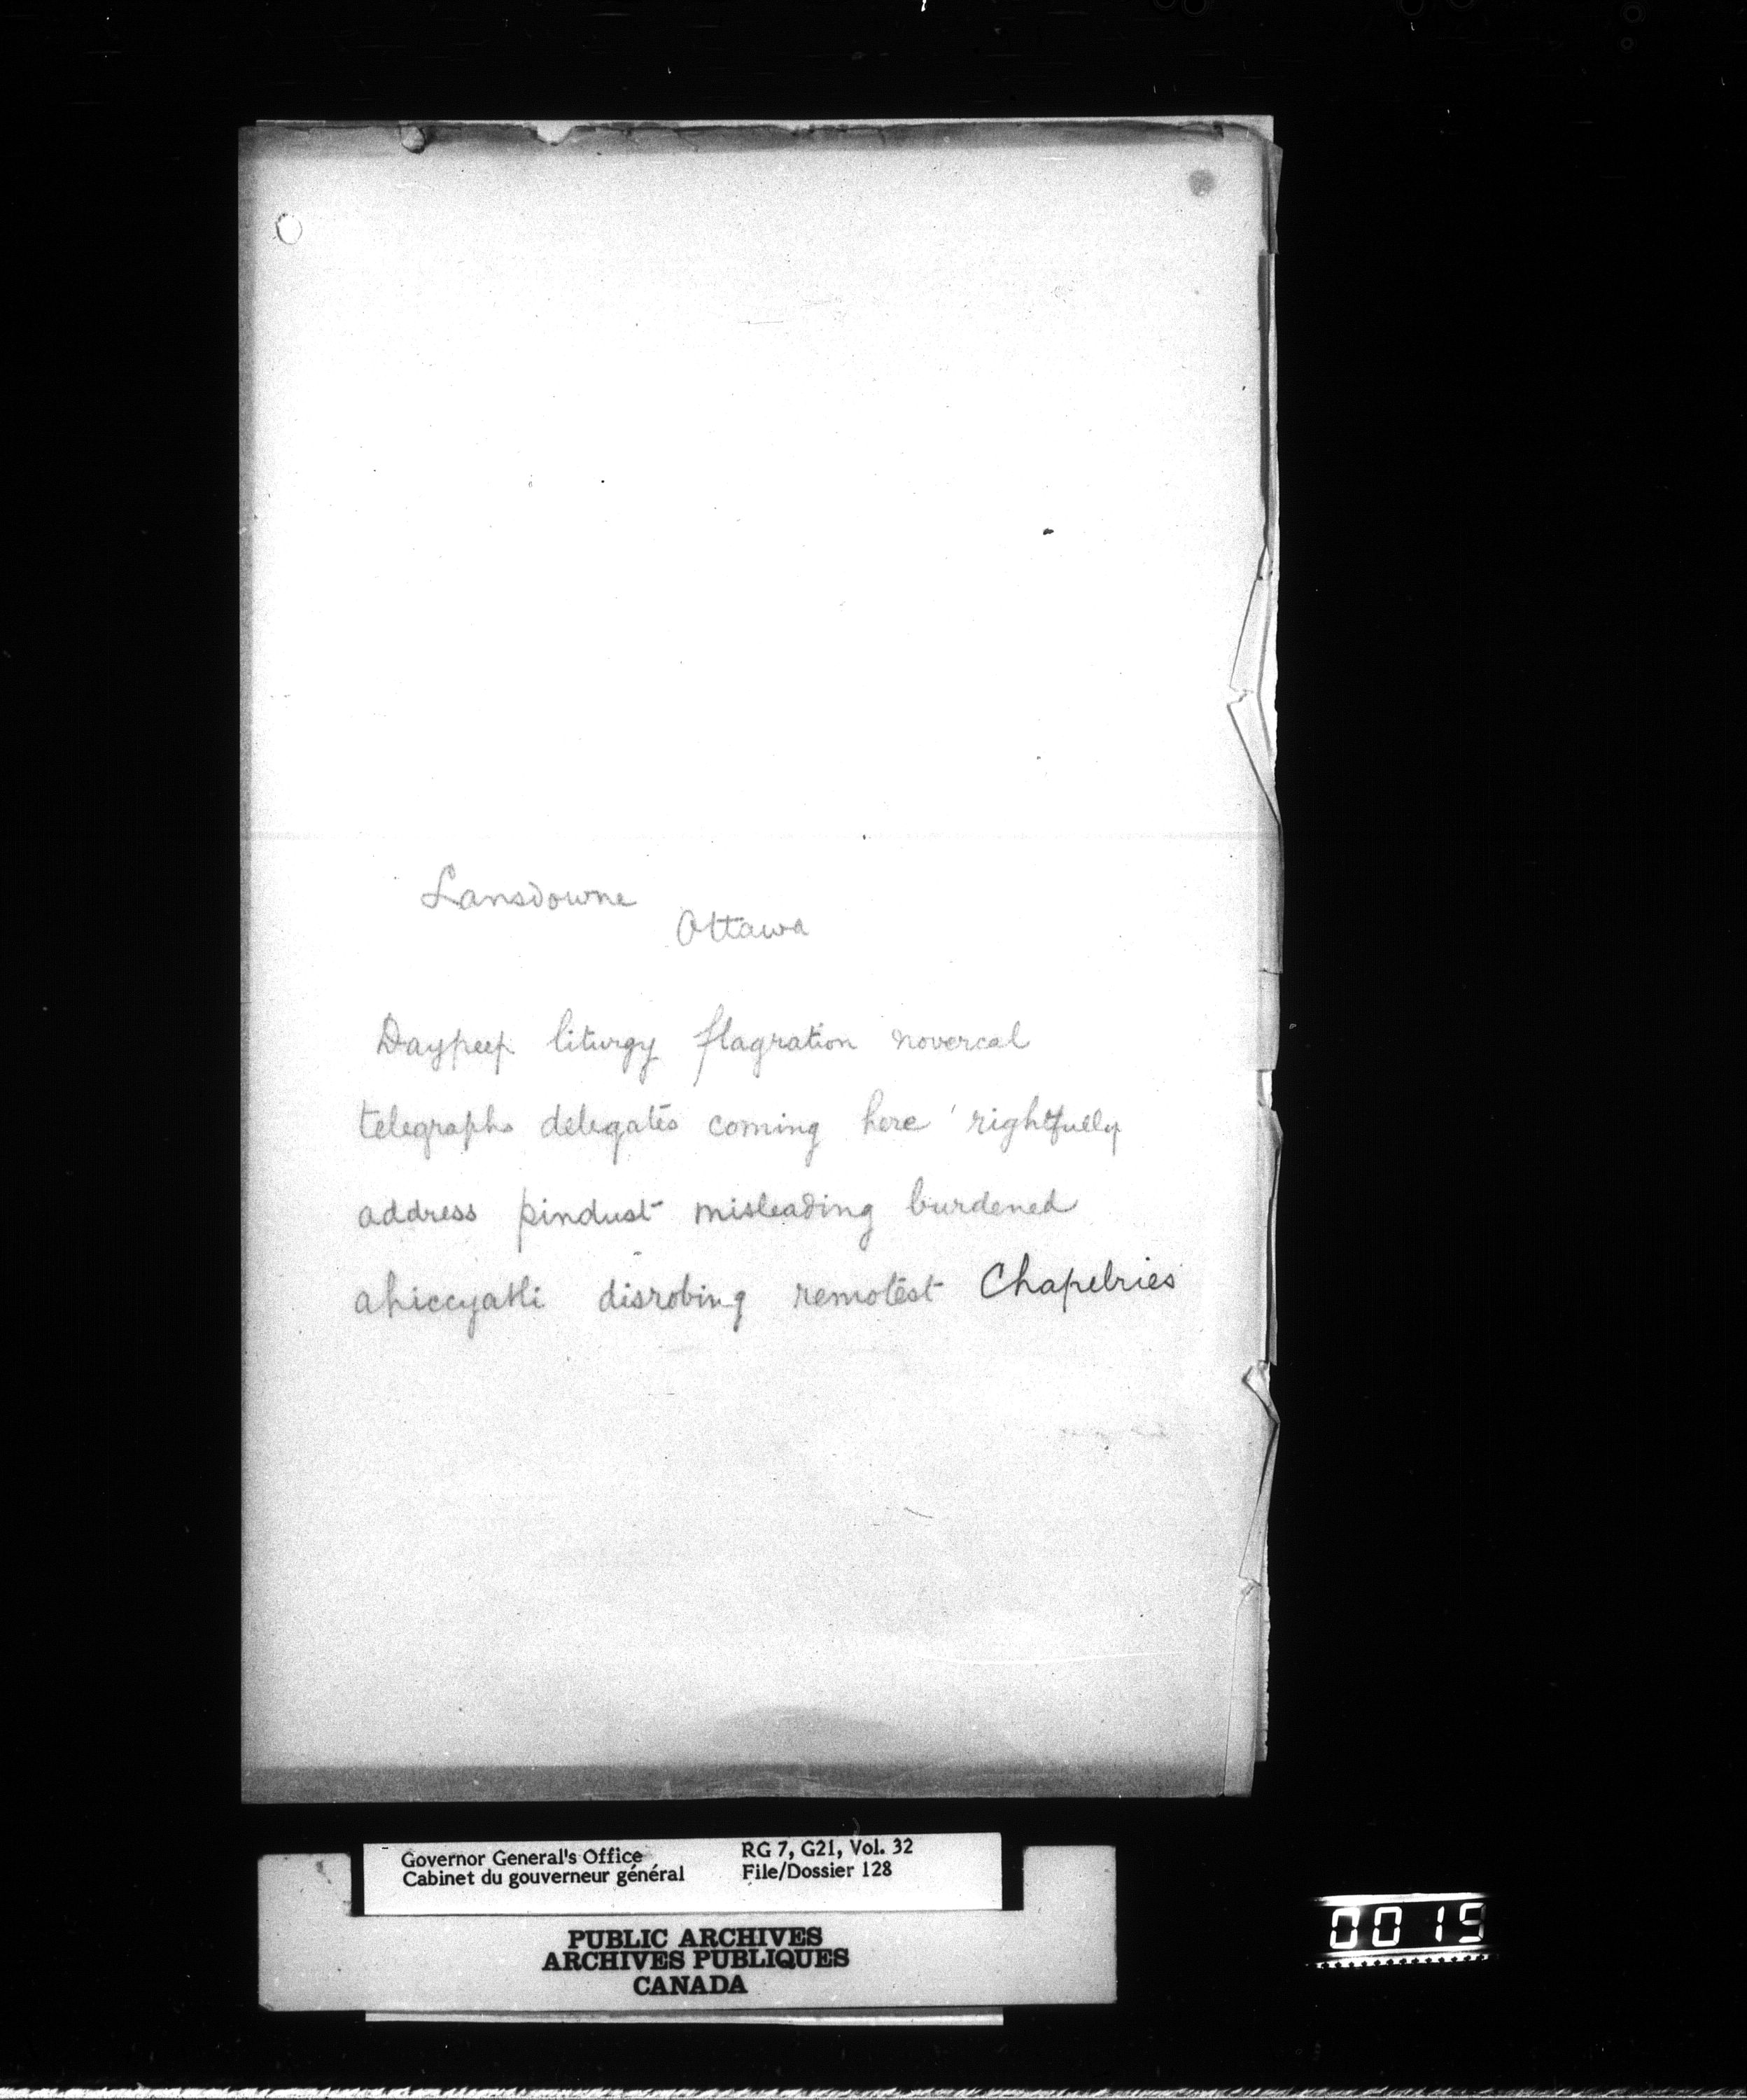 Lansdowne
Ottawa
Daypeep liturgy flagration novercal
telegraphs delegates coming here rightfully
address pindust misleading burdened
ahiccyatli disrobing remotest Chapelries
Governor General's Office
Cabinet du gouverneur général
RG 7, G21, Vol. 32
File/Dossier 128
PUBLIC ARCHIVES
ARCHIVES PUBLIQUES
CANADA
0015